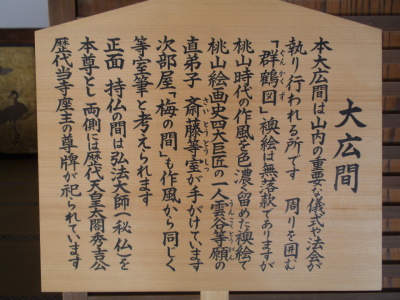 大広間
本大広間は山内の重要な儀式や法会が
執り行われる所です 周りを囲む
「群鶴図」襖絵は無落款でありますが
ぐんかくず
桃山時代の作風を色濃く留めた襖絵で
桃山絵画史四大巨匠の一人雲谷等顔の
うんこくとうがん
直弟子 斎藤等室が手がけています
さいとうとうしつ
次部屋「梅の間」も作風から同じく
等室筆と考えられます
正面 持仏の間は弘法大師(秘仏)を
本尊とし両側には歴代天皇太閤秀吉公
歴代当寺座主の尊牌が祀られています